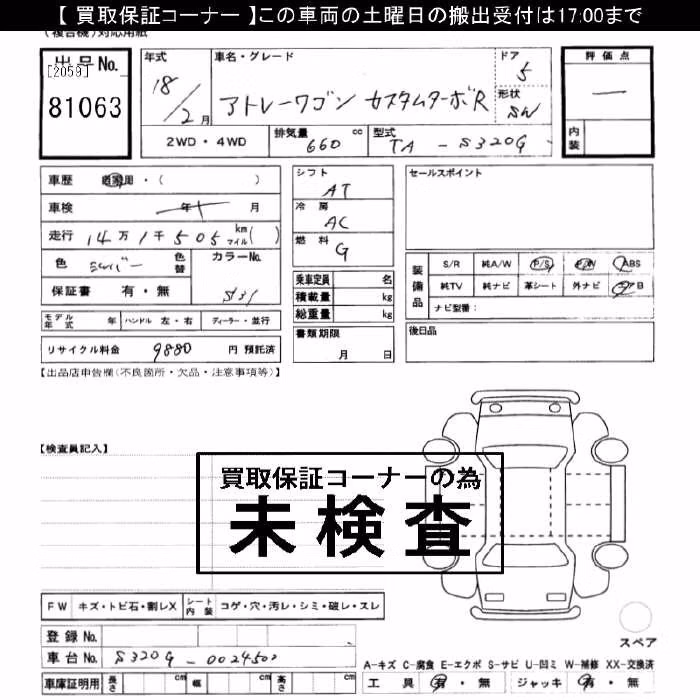 【 買取保証コーナー 】この車両の土曜日の搬出受付は17:00まで
(複合機)対応用紙
出品No.
[2059]
81063
年式
18/2月
車名・グレード
アトレーワゴン カスタムターボR
ドア
5
形状
SW
評価点
—
内装
2WD・4WD
排気量 660 cc
型式 TA - S320G
車歴 自家用・( )
車検 年 月
走行 14万1千505 km マイル( )
色 シルバー 色替
カラーNo.
保証書 有・無
モデル年式 年 ハンドル 左・右 ディーラー・並行
リサイクル料金 9880 円 預託済
シフト
AT
冷房
AC
燃料
G
乗車定員 名
積載量 kg
総重量 kg
書類期限
月 日
セールスポイント
装備品
S/R 純A/W P/S P/W ABS
純TV 純ナビ 革シート 外ナビ エアB
ナビ型番:
後日品
【出品店申告欄(不良箇所・欠品・注意事項等)】
【検査員記入】
買取保証コーナーの為
未検査
FW キズ・トビ石・割レX
シート内装 コゲ・穴・汚レ・シミ・破レ・スレ
登録No.
車台No. S320G - 0024500
車庫証明用 長さ cm 幅 cm 高さ cm
スペア
A-キズ C-腐食 E-エクボ S-サビ U-凹ミ W-補修 XX-交換済
工具 有・無 ジャッキ 有・無